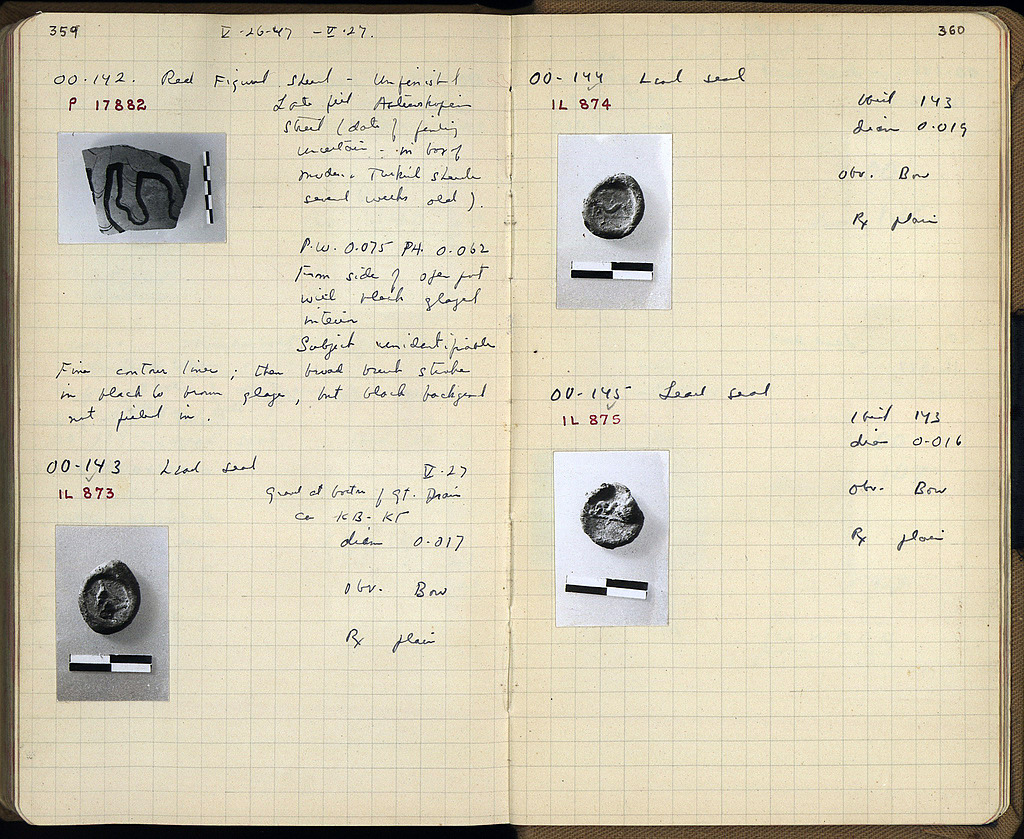 359
V-26-47 - V-27.
OO-142. Red Figured sherd - Unfinished
P 17882
Late fill Areiopagus
Street (date of finding
uncertain - in box of
modern Turkish sherds
several weeks old).
P.W. 0.075 P.H. 0.062
From side of open pot
with black glazed
interior
Subject unidentifiable
Fine contour lines; then broad brush stroke
in black to brown glaze, but black background
not filled in.
OO-143 Lead seal
V-27
IL 873
Gravel at bottom of Gt. Drain
ca
diam 0.017
Obv. Bow
Rx plain
360
OO-144 Lead seal
IL 874
With 143
diam 0.019
Obv. Bow
Rx plain
OO-145 Lead seal
IL 875
With 143
diam 0.016
Obv. Bow
Rx plain